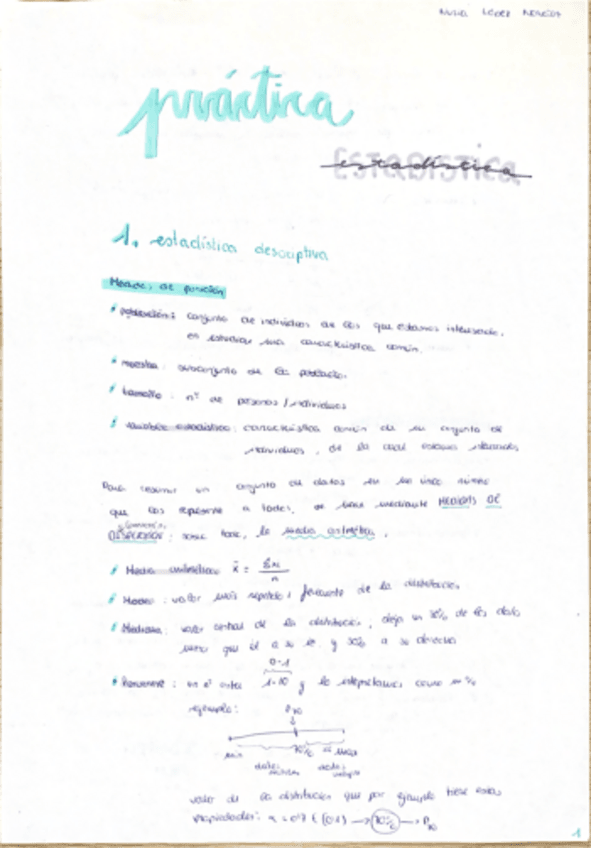 práctica
ESTADÍSTICA
estadística
1. estadística descriptiva
Medidas de posición
población: conjunto de individuos de los que estamos interesados
en estudiar una característica común.
muestra: subconjunto de la población.
tamaño: nº de personas / individuos
variable estadística: característica común de un conjunto de
individuos, de la cual estamos
Para resumir un conjunto de datos en un único número
que los represente a todos, se hace mediante MEDIDAS DE
DISPERSIÓN: sobre todo, la media aritmética.
Media aritmética x̄ = Σxi / n
Moda: valor más repetido / frecuente de la distribución
Mediana: valor central de la distribución, deja un 50% de los datos
que él a su izq. y 50% a su derecha
0-1
: un nº entre 1-10 y lo interpretamos como un %
ejemplo:
P70
min 70% max
datos datos
valor de la distribución que por ejemplo tiene estas
propiedades: α = 0'7 ∈ (0,1) → 70% → P70
1